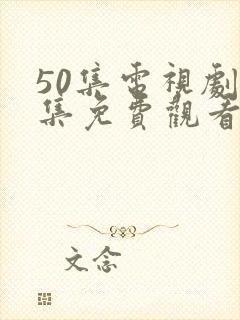 50集電視劇
集免費觀看
文念